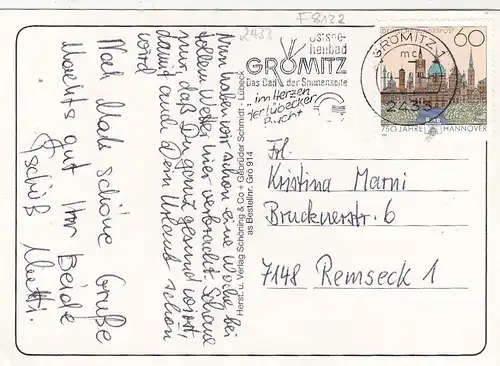 F 8122
2433
Ostsee-
heilbad
GRÖMITZ
Das Bad der Sonnenseite
im Herzen
der Lübecker
Bucht
GRÖMITZ 1
mc
2433
60
BUNDESPOST
750 JAHRE HANNOVER
Nun haben wir schon eine Woche bei
tollem Wetter hier verbracht. Schaue
nur, daß Du ganz gesund wirst
damit auch Dein Urlaub schön
wird
Noch Mals schöne Grüße
Macht's gut Ihr Beide
Tschüß Mutti.
Herst. u. Verlag Schöning & Co + Gebrüder Schmidt - Lübeck
as Bestellnr. Grö 914
Frl.
Kristina Marni
Brucknerstr. 6
7148 Remseck 1